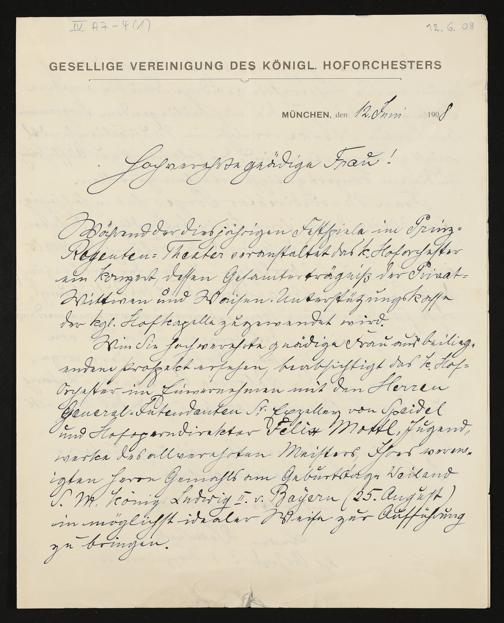 IV A7-4(1)
12. 6. 08
GESELLIGE VEREINIGUNG DES KÖNIGL. HOFORCHESTERS
MÜNCHEN, den 12. Juni 1908
Hochverehrte gnädige Frau!
Während der diesjährigen Festspiele im Prinz-
Regenten-Theater veranstaltet das k. Hoforchester
ein Konzert dessen Gesamterträgniß der Privat-
Wittwen und Waisen-Unterstützungskasse
der kgl. Hofkapelle zugewendet wird.
Wie Sie hochverehrte gnädige Frau aus beilieg-
endem Prospekt ersehen, beabsichtigt das k. Hof-
Orchester im Einvernehmen mit den Herren
General-Intendanten Sr. Exzellenz von Speidel
und Hofoperndirektor Felix Mottl, Jugend-
werke des allverehrten Meisters, Ihres verew-
igten Herrn Gemahls am Geburtstage Weiland
S. M. König Ludwig II. v. Bayern (25. August)
in möglichst idealer Weise zur Aufführung
zu bringen.